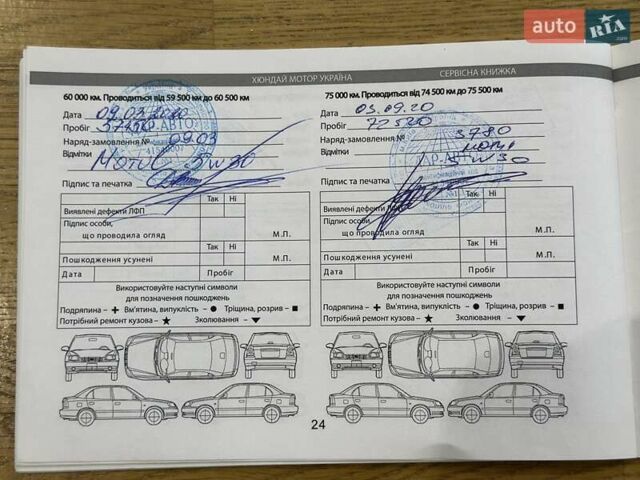 auto RIA.com
ХЮНДАЙ МОТОР УКРАЇНА
СЕРВІСНА КНИЖКА
60 000 км. Проводиться від 59 500 км до 60 500 км
Дата 09.03.2020
Пробіг
Наряд-замовлення № 09.03
Відмітки MOTUL 5W30
Підпис та печатка
Так Ні
Виявлені дефекти ЛФП
Підпис особи,
що проводила огляд М.П.
Так Ні
Пошкодження усунені М.П.
Дата Пробіг
Використовуйте наступні символи
для позначення пошкоджень
Подряпина - + Вм'ятина, випуклість - ● Тріщина, розрив - ■
Потрібний ремонт кузова - ★ Зколювання - ▼
75 000 км. Проводиться від 74 500 км до 75 500 км
Дата 03.09.20
Пробіг 72520
Наряд-замовлення № 3780
Відмітки 5W30
Підпис та печатка
Так Ні
Виявлені дефекти ЛФП
Підпис особи,
що проводила огляд М.П.
Так Ні
Пошкодження усунені М.П.
Дата Пробіг
Використовуйте наступні символи
для позначення пошкоджень
Подряпина - + Вм'ятина, випуклість - ● Тріщина, розрив - ■
Потрібний ремонт кузова - ★ Зколювання - ▼
24